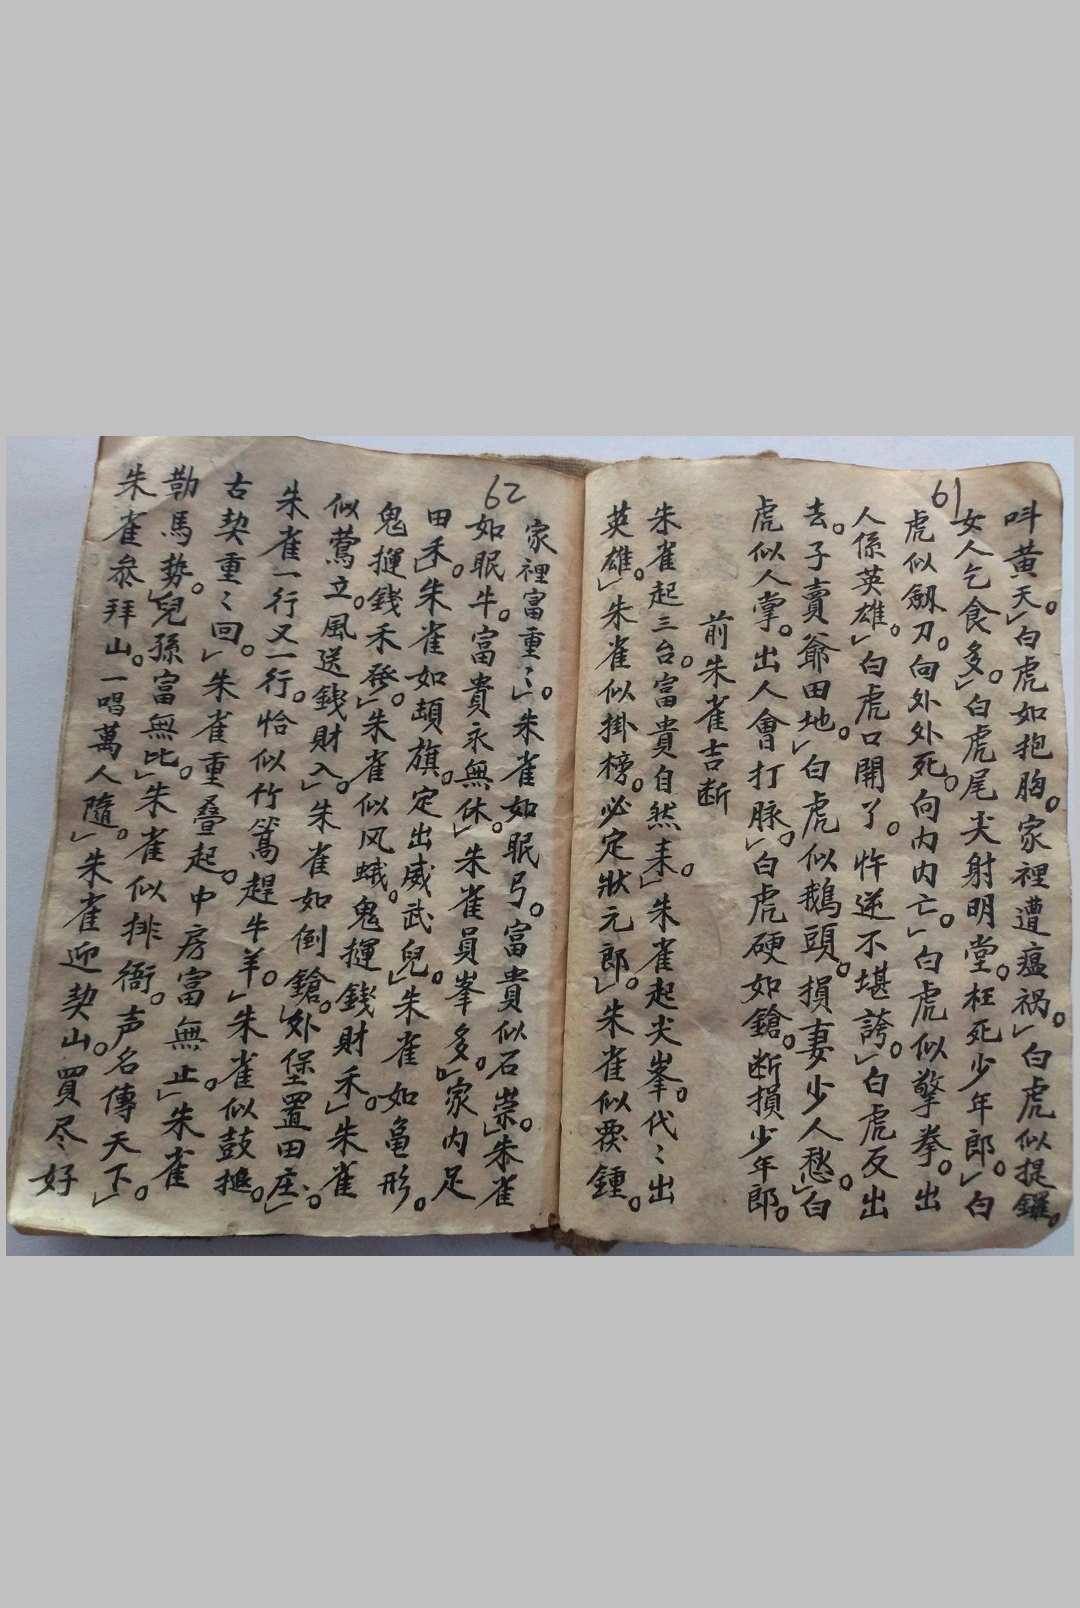 61
叫黄天。」白虎如抱胸。家裡遭瘟祸。」白虎似提鑼。
女人乞食多。」白虎尾尖射明堂。枉死少年郎。」白
虎似劔刀。向外外死。向内内亡。」白虎似擎拳。出
人係英雄。」白虎口開了。忤逆不堪誇。」白虎反出
去。子賣爺田地。」白虎似鵝頭。損妻少人愁。」白
虎似人掌。出人會打脉。」白虎硬如鎗。断損少年郎。
前朱雀吉断
朱雀起三台。富貴自然来。」朱雀起尖峯。代〻出
英雄。」朱雀似掛榜。必定狀元郎。」朱雀似覆鍾。
62
家裡富重〻。」朱雀如眠弓。富貴似石崇。」朱雀
如眠牛。富貴永無休。」朱雀員峯多。」家内足
田禾。」朱雀如頓旗。定出威武兒。」朱雀如龜形。
鬼運錢禾發。」朱雀似风蛾。鬼運錢財禾。」朱雀
似鶯立。風送錢財入。」朱雀如倒鎗。」外堡置田庄。」
朱雀一行又一行。恰似竹篙趕牛羊。」朱雀似鼓搥。
古契重〻回。」朱雀重叠起。中房富無止。」朱雀
勒馬势。」兒孫富無比。」朱雀似排衙。声名傳天下。」
朱雀叅拜山。一唱萬人隨。」朱雀迎契山。買尽好